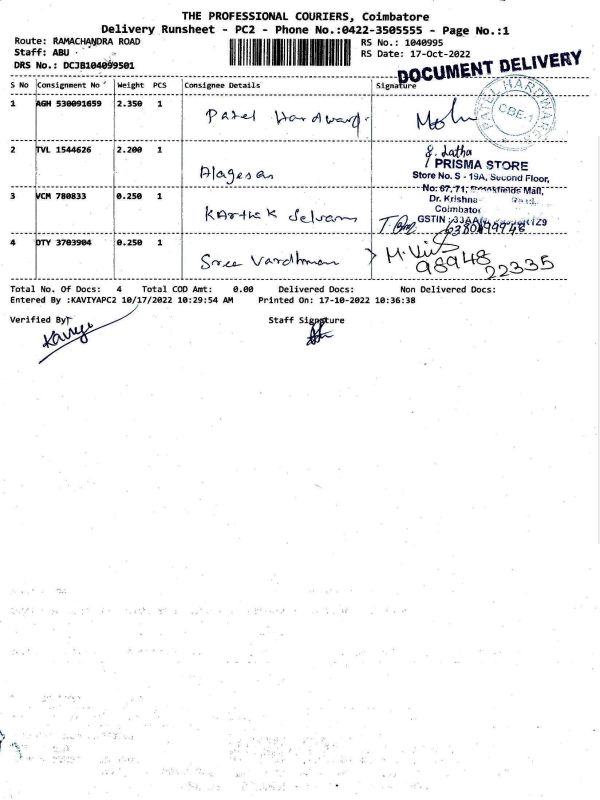 THE PROFESSIONAL COURIERS, Coimbatore
Delivery Runsheet - PC2 - Phone No.:0422-3505555 - Page No.:1
Route: RAMACHANDRA ROAD
Staff: ABU
DRS No.: DCJB104099501
RS No.: 1040995
RS Date: 17-Oct-2022
DOCUMENT DELIVERY
S No Consignment No Weight PCS Consignee Details Signature
1 AGH 530091659 2.350 1 Patel Hardward.
PATEL HARDWARE
CBE-1
2 TVL 1544626 2.200 1 Alagesan
Latha
PRISMA STORE
Store No. S - 19A, Second Floor,
No. 67, 71, Mall,
Dr. Krishna
Coimbator
3 VCM 780833 0.250 1 Karthik Selvam
GSTIN
4 DTY 3703904 0.250 1 Sree Vardhman
98948
22335
Total No. Of Docs: 4 Total COD Amt: 0.00 Delivered Docs: Non Delivered Docs:
Entered By :KAVIYAPC2 10/17/2022 10:29:54 AM Printed On: 17-10-2022 10:36:38
Verified By Staff Signature